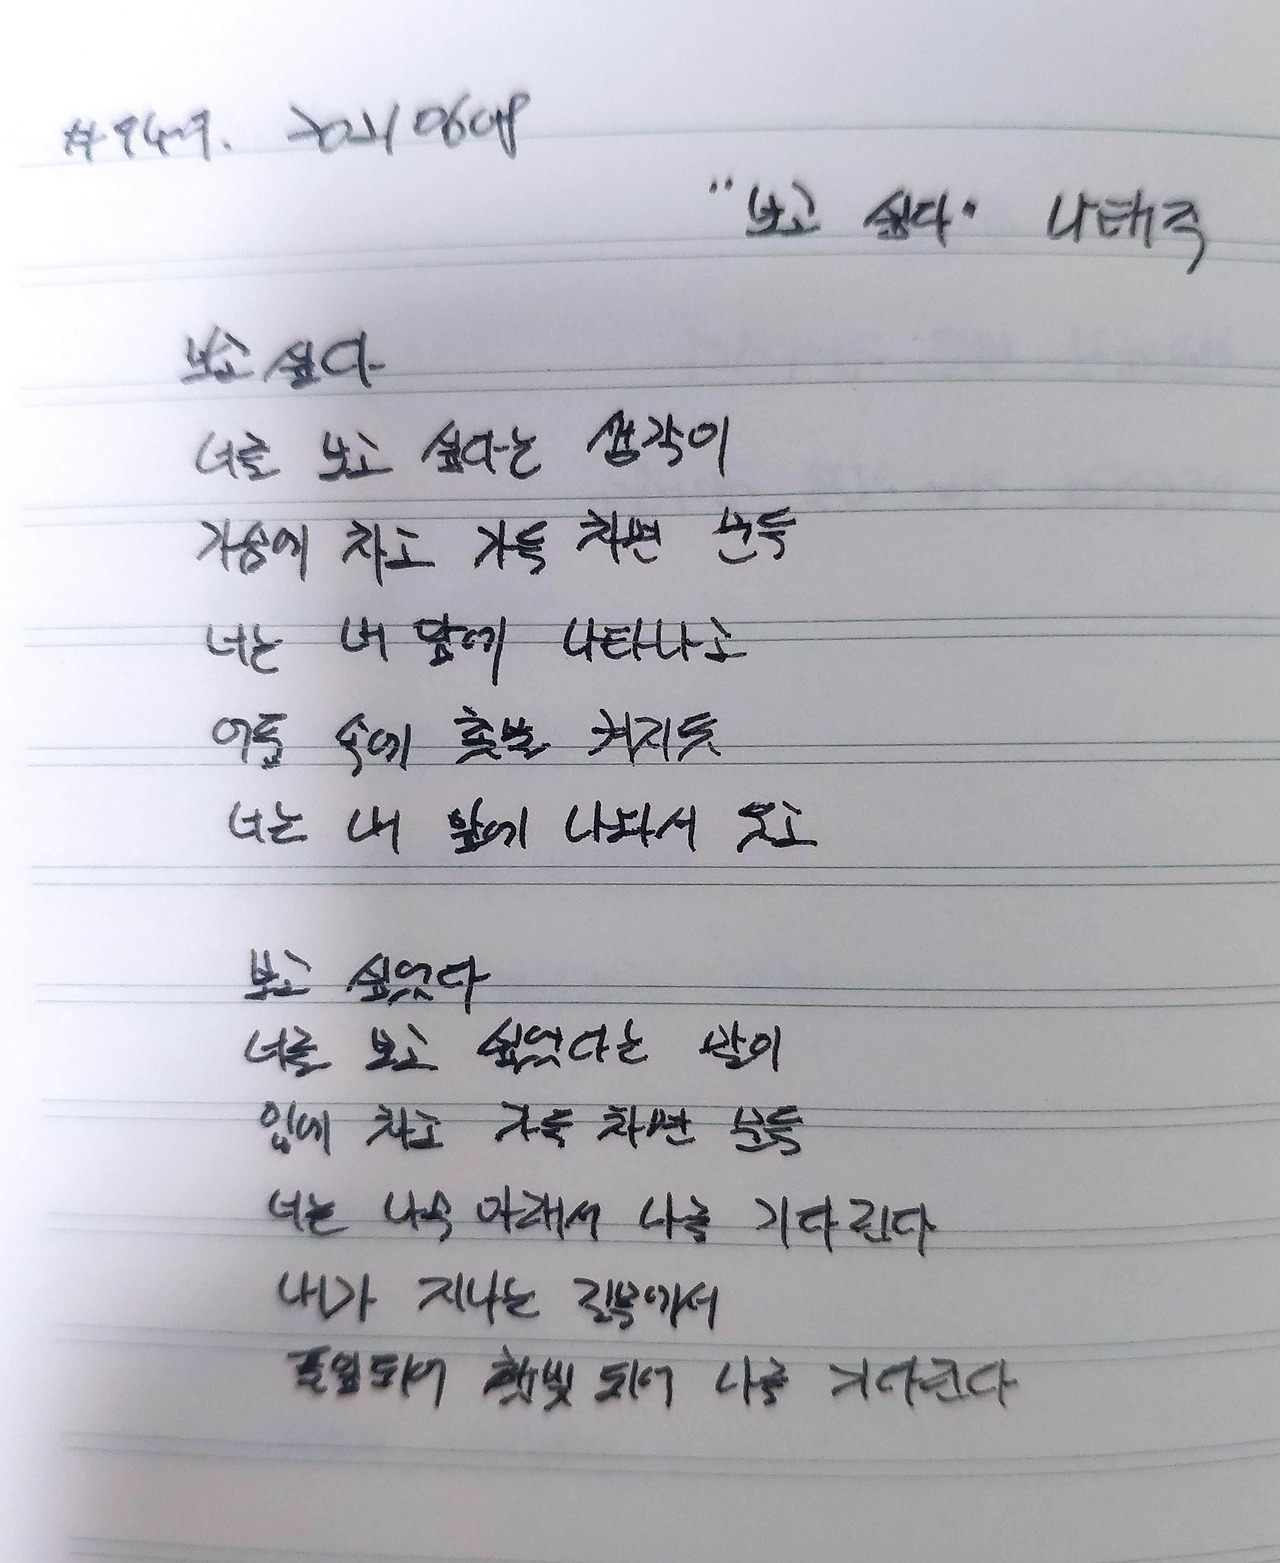 20210608
"보고 싶다" 나태주
보고 싶다
너를 보고 싶다는 생각이
가슴에 차고 가득 차면 문득
너는 내 앞에 나타나고
어둠 속에 촛불 켜지듯
너는 내 앞에 나와서 웃고
보고 싶었다
너를 보고 싶었다는 말이
입에 차고 가득 차면 문득
너는 나무 아래서 나를 기다린다
내가 지나는 길목에서
풀잎되어 햇빛 되어 나를 기다린다